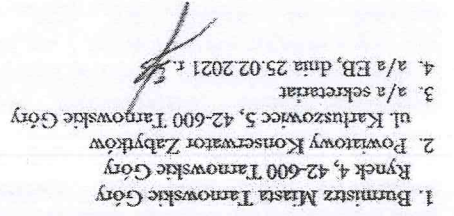 1. Burmistrz Miasta Tarnowskie Góry
Rynek 4, 42-600 Tarnowskie Góry
2. Powiatowy Konserwator Zabytków
ul. Karłuszowiec 5, 42-600 Tarnowskie Góry
3. a/a sekretariat
4. a/a EB, dnia 25.02.2021 r.